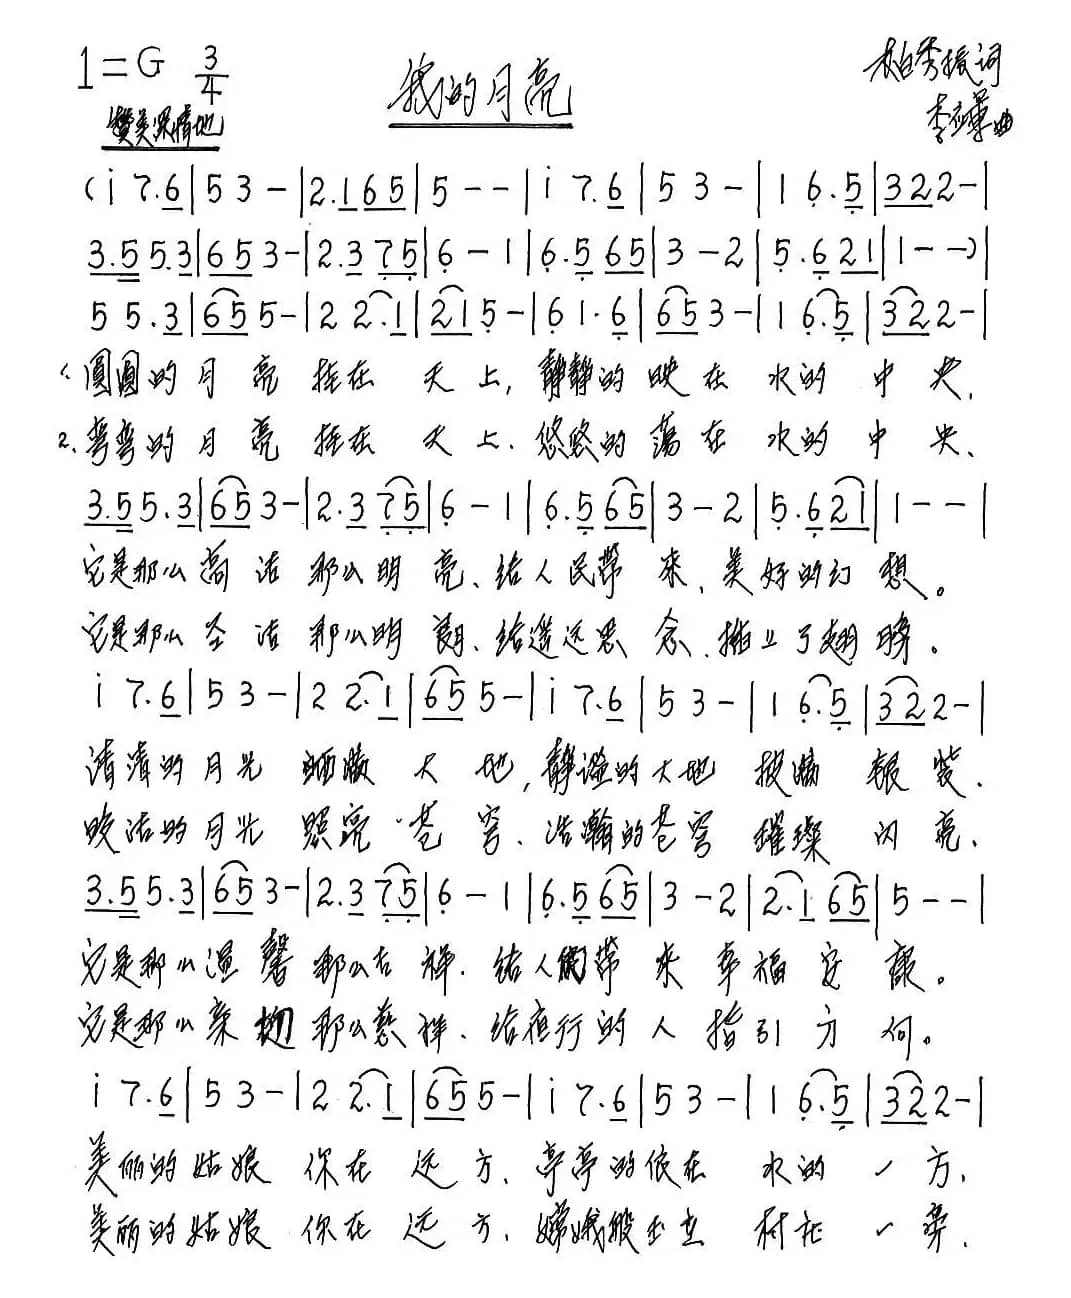 1=G 3/4
我的月亮
柏秀振词
赞美深情地
李 曲
(i 7.6|5 3 -|2.1 6 5|5 - -|i 7.6|5 3 -|1 6.5|3 2 2 -|
3.5 5.3|6 5 3 -|2.3 7 5|6 - 1|6.5 6 5|3 - 2|5.6 2 1|1 - -)|
5 5.3|6 5 5 -|2 2.1|2 1 5 -|6 1.6|6 5 3 -|1 6.5|3 2 2 -|
1. 圆圆的月亮挂在天上,静静的映在水的中央,
2. 弯弯的月亮挂在天上.悠悠的荡在水的中央、
3.5 5.3|6 5 3 -|2.3 7 5|6 - 1|6.5 6 5|3 - 2|5.6 2 1|1 - -|
它是那么高洁那么明亮、给人民带来,美好的幻想。
它是那么圣洁那么明朗、给遥远思念、插上了翅膀。
i 7.6|5 3 -|2 2.1|6 5 5 -|i 7.6|5 3 -|1 6.5|3 2 2 -|
清清的月光洒满大地,静谧的大地披满银装.
皎洁的月光照亮苍穹.浩瀚的苍穹璀璨闪亮、
3.5 5.3|6 5 3 -|2.3 7 5|6 - 1|6.5 6 5|3 - 2|2.1 6 5|5 - -|
它是那么温馨那么吉祥.给人间带来幸福安康。
它是那么亲切那么慈祥、给夜行的人指引方向。
i 7.6|5 3 -|2 2.1|6 5 5 -|i 7.6|5 3 -|1 6.5|3 2 2 -|
美丽的姑娘你在远方、亭亭的依在水的一方,
美丽的姑娘你在远方.嫦娥般玉立村庄一旁.